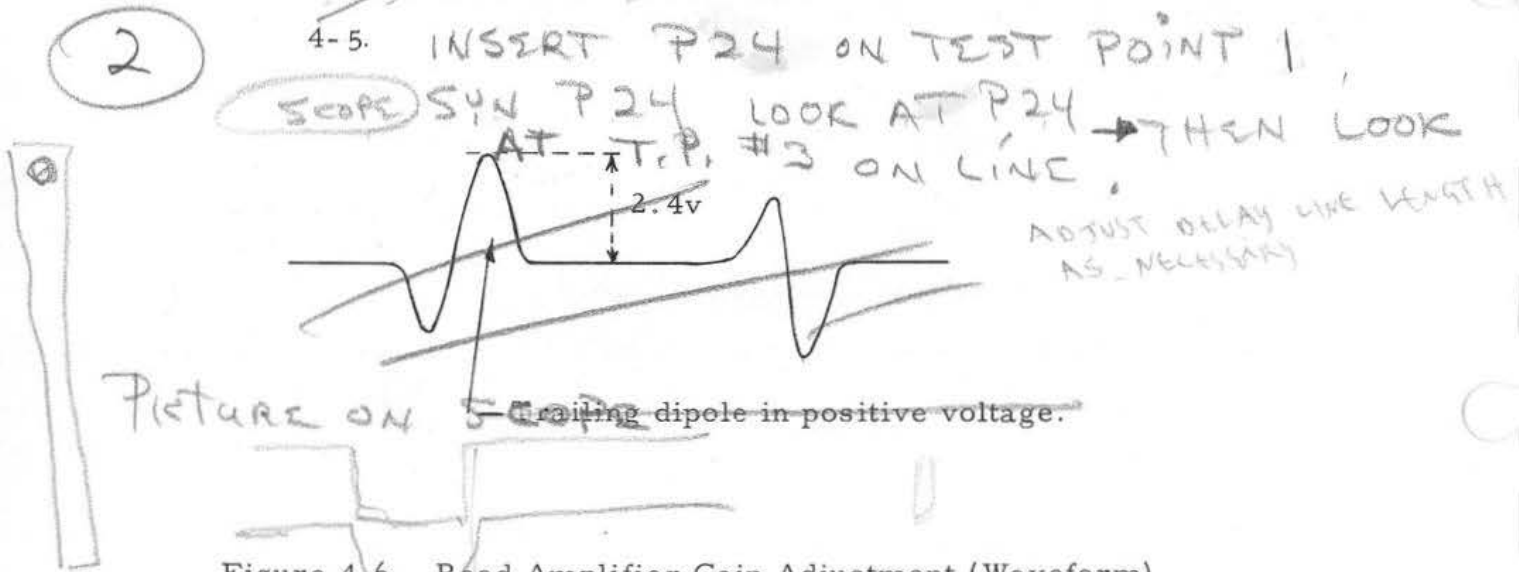 2
4-5. INSERT P24 ON TEST POINT 1
SCOPE SYN P24 LOOK AT P24 → THEN LOOK
AT T.P. #3 ON LINE.
2.4v
ADJUST DELAY LINE LENGTH
AS NECESSARY
PICTURE ON SCOPE
Trailing dipole in positive voltage.
Figure 4-6. Read Amplifier Gain Adjustment (Waveform)